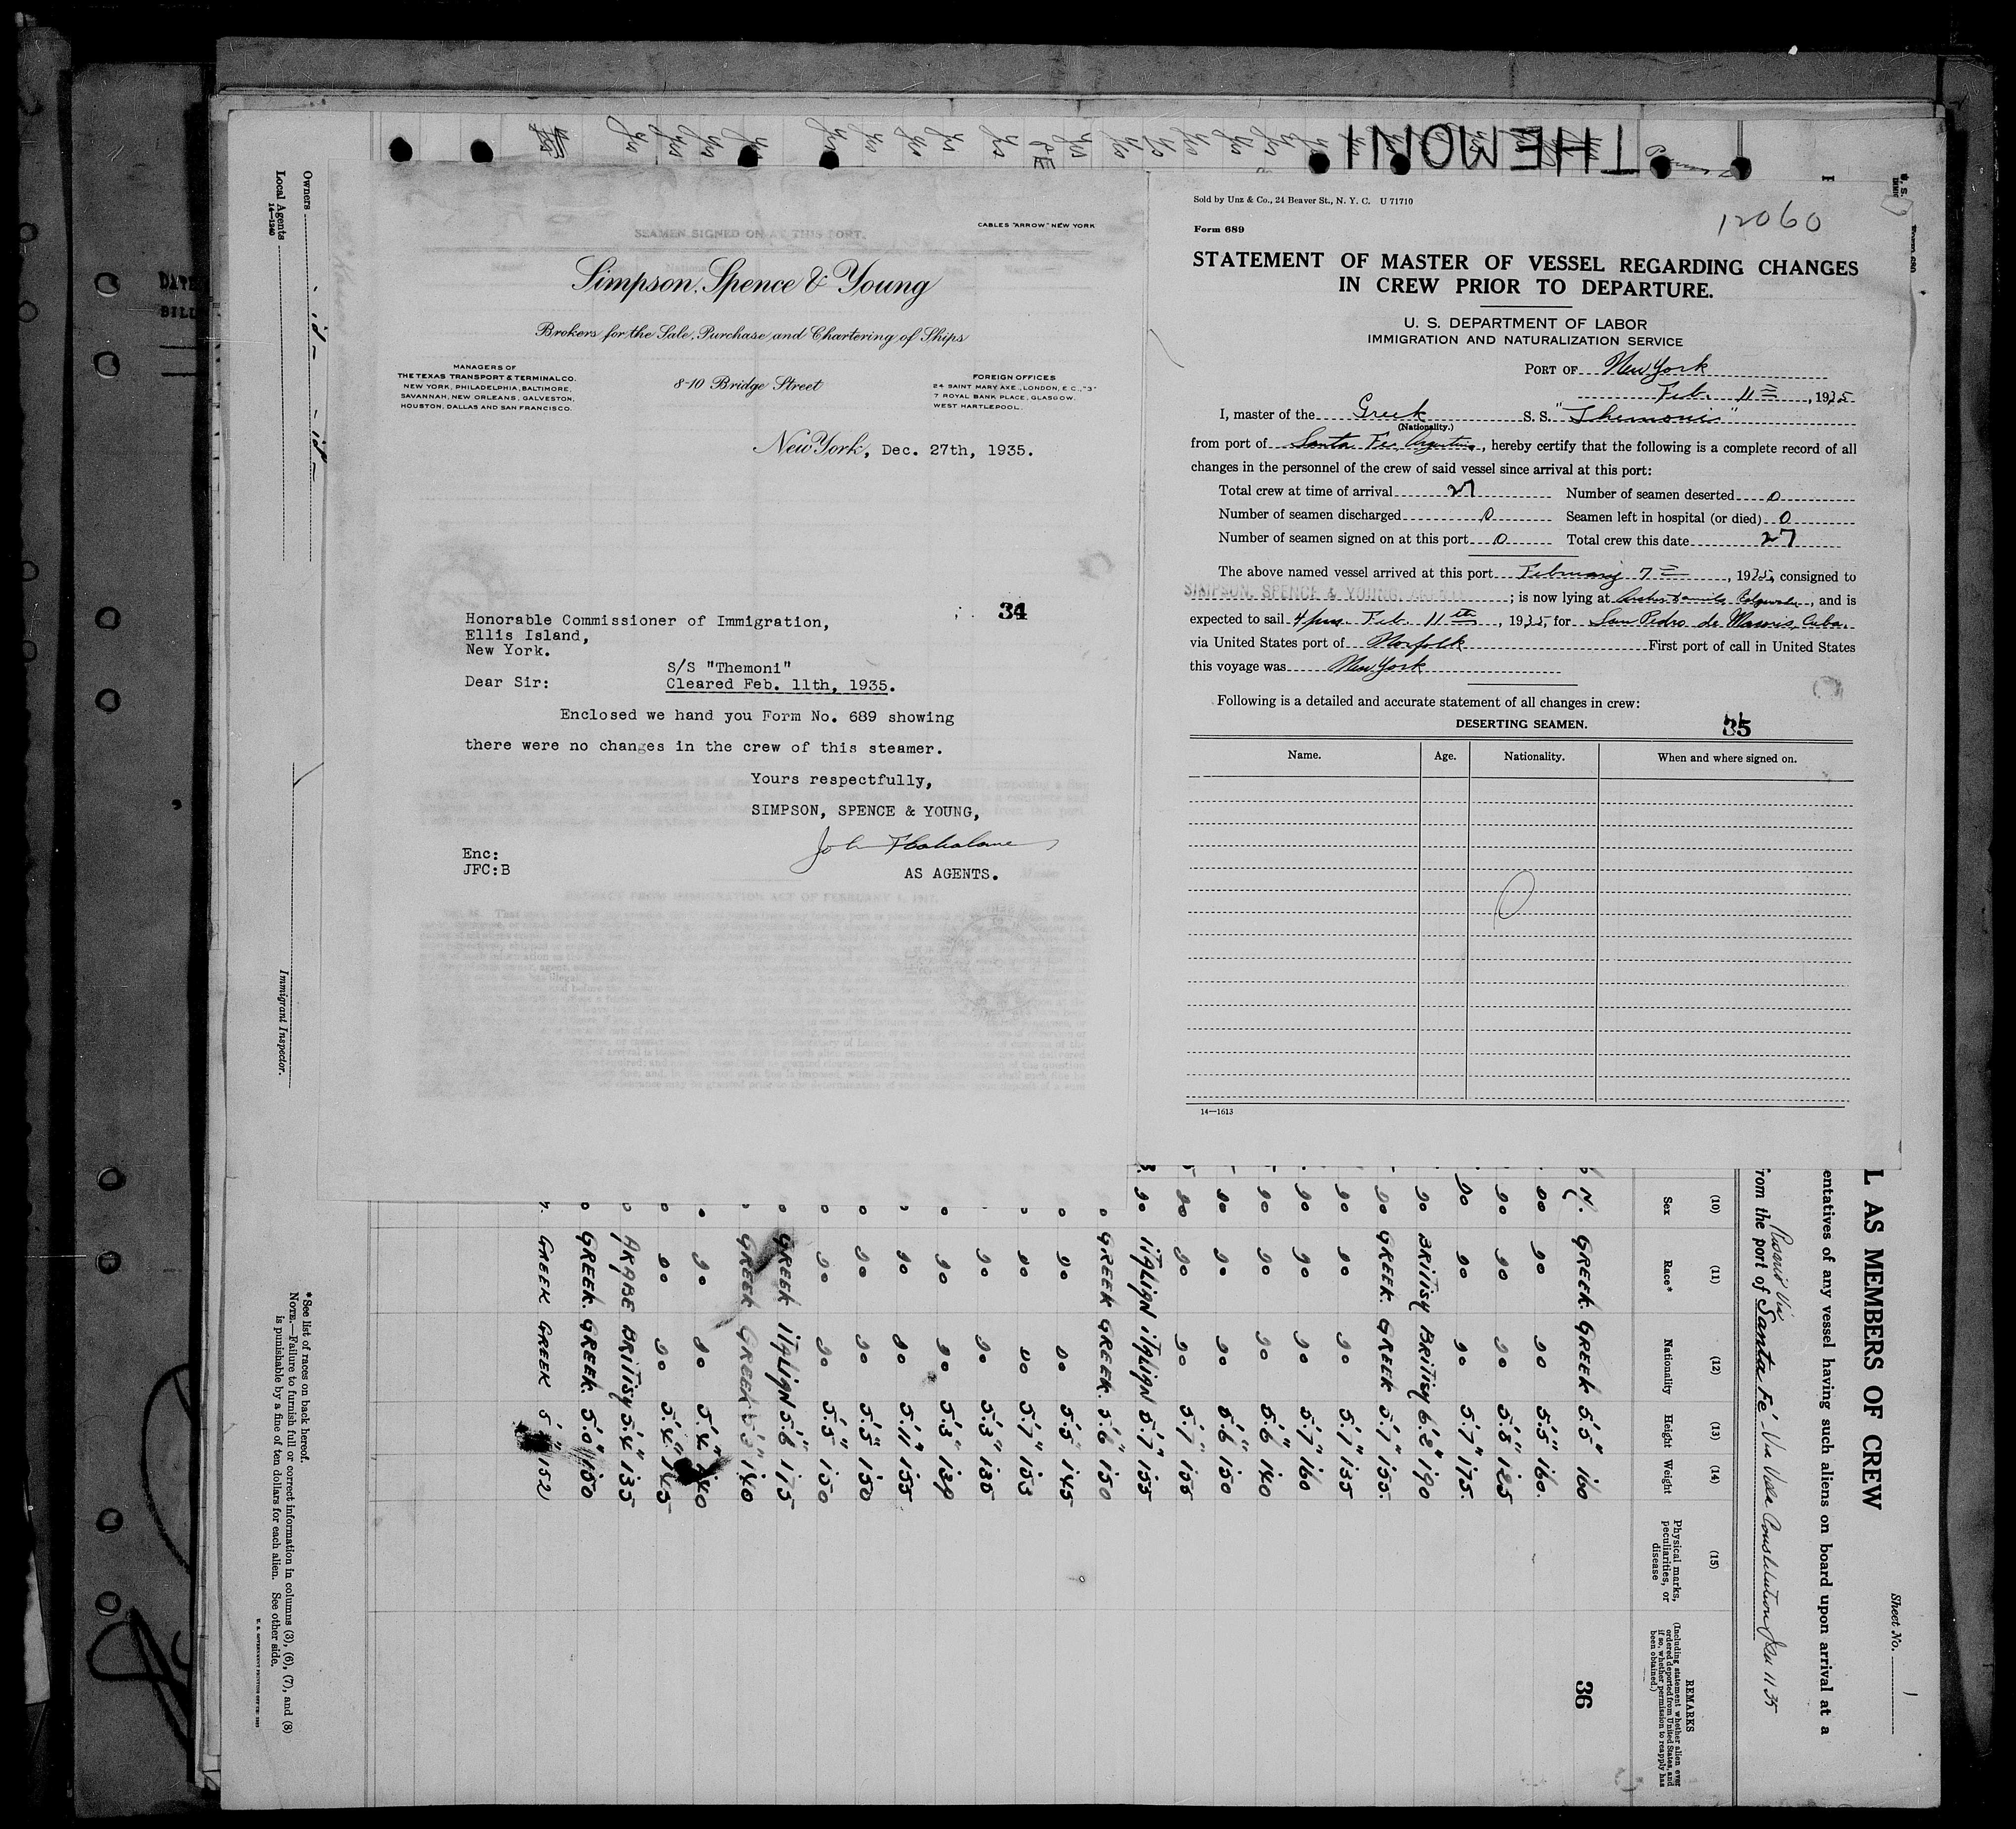 THEMONI
CABLES "ARROW" NEW YORK
SEAMEN SIGNED ON AT THIS PORT.
Simpson, Spence & Young
Brokers for the Sale, Purchase and Chartering of Ships
MANAGERS OF
THE TEXAS TRANSPORT & TERMINAL CO.
NEW YORK, PHILADELPHIA, BALTIMORE,
SAVANNAH, NEW ORLEANS, GALVESTON,
HOUSTON, DALLAS AND SAN FRANCISCO.
8-10 Bridge Street
FOREIGN OFFICES
24 SAINT MARY AXE., LONDON, E.C., "3"
7 ROYAL BANK PLACE, GLASGOW.
WEST HARTLEPOOL.
New York, Dec. 27th, 1935.
34
Honorable Commissioner of Immigration,
Ellis Island,
New York.
S/S "Themoni"
Dear Sir: Cleared Feb. 11th, 1935.
Enclosed we hand you Form No. 689 showing
there were no changes in the crew of this steamer.
Yours respectfully,
SIMPSON, SPENCE & YOUNG,
Enc:
JFC:B
AS AGENTS.
EXTRACT FROM IMMIGRATION ACT OF FEBRUARY 5, 1917.
Sold by Unz & Co., 24 Beaver St., N. Y. C. U 71710
12060
Form 689
STATEMENT OF MASTER OF VESSEL REGARDING CHANGES
IN CREW PRIOR TO DEPARTURE.
U. S. DEPARTMENT OF LABOR
IMMIGRATION AND NATURALIZATION SERVICE
PORT OF New York
Feb. 11th, 1935
I, master of the Greek S. S. "Themoni"
(Nationality.)
from port of Santa Fe, Argentina, hereby certify that the following is a complete record of all
changes in the personnel of the crew of said vessel since arrival at this port:
Total crew at time of arrival 27 Number of seamen deserted 0
Number of seamen discharged 0 Seamen left in hospital (or died) 0
Number of seamen signed on at this port 0 Total crew this date 27
The above named vessel arrived at this port February 7th, 1935, consigned to
SIMPSON, SPENCE & YOUNG, AGENTS; is now lying at Edgewater, and is
expected to sail 4 pm. Feb. 11th, 1935, for San Pedro de Macoris, Cuba.
via United States port of Norfolk First port of call in United States
this voyage was New York
Following is a detailed and accurate statement of all changes in crew:
DESERTING SEAMEN. 35
Name. Age. Nationality. When and where signed on.
0
14—1613
L AS MEMBERS OF CREW
Sheet No. 1
entatives of any vessel having such aliens on board upon arrival at a
rom the port of Santa Fé
(10) (11) (12) (13) (14) (15)
Sex Race* Nationality Height Weight Physical marks, peculiarities, or disease
REMARKS
(Including statement whether alien ever ordered deported from United States, and if so, whether permission to reapply has been obtained.)
36
GREEK. GREEK 5'5" 160
do do do 5'5" 160.
do do do 5'8" 125
do do do 5'7" 175.
do BRITISH BRITISH 6'2" 190
do GREEK. GREEK 5'7" 155.
do do do 5'7" 135
do do do 5'7" 160
do do do 5'6" 140
do do do 5'6" 150
do do do 5'7" 155
do ITALIAN ITALIAN 5'7" 155
GREEK GREEK. 5'6" 150
do do 5'5" 145
do do 5'7" 153
do do 5'3" 135
do do 5'3" 139
do do 5'11" 155
do do 5'5" 150
do do 5'5" 150
GREEK ITALIAN 5'6" 175
GREEK GREEK 5'3" 140
do do 5'4" 140
do do 5'4" 145
ARABE BRITISH 5'4" 135
GREEK. GREEK. 5'0" 150
GREEK GREEK 152
*See list of races on back hereof.
NOTE.—Failure to furnish full or correct information in columns (3), (6), (7), and (8)
is punishable by a fine of ten dollars for each alien. See other side.
Owners
Local Agents
14—1240
Immigrant Inspector.
DATE
BILL